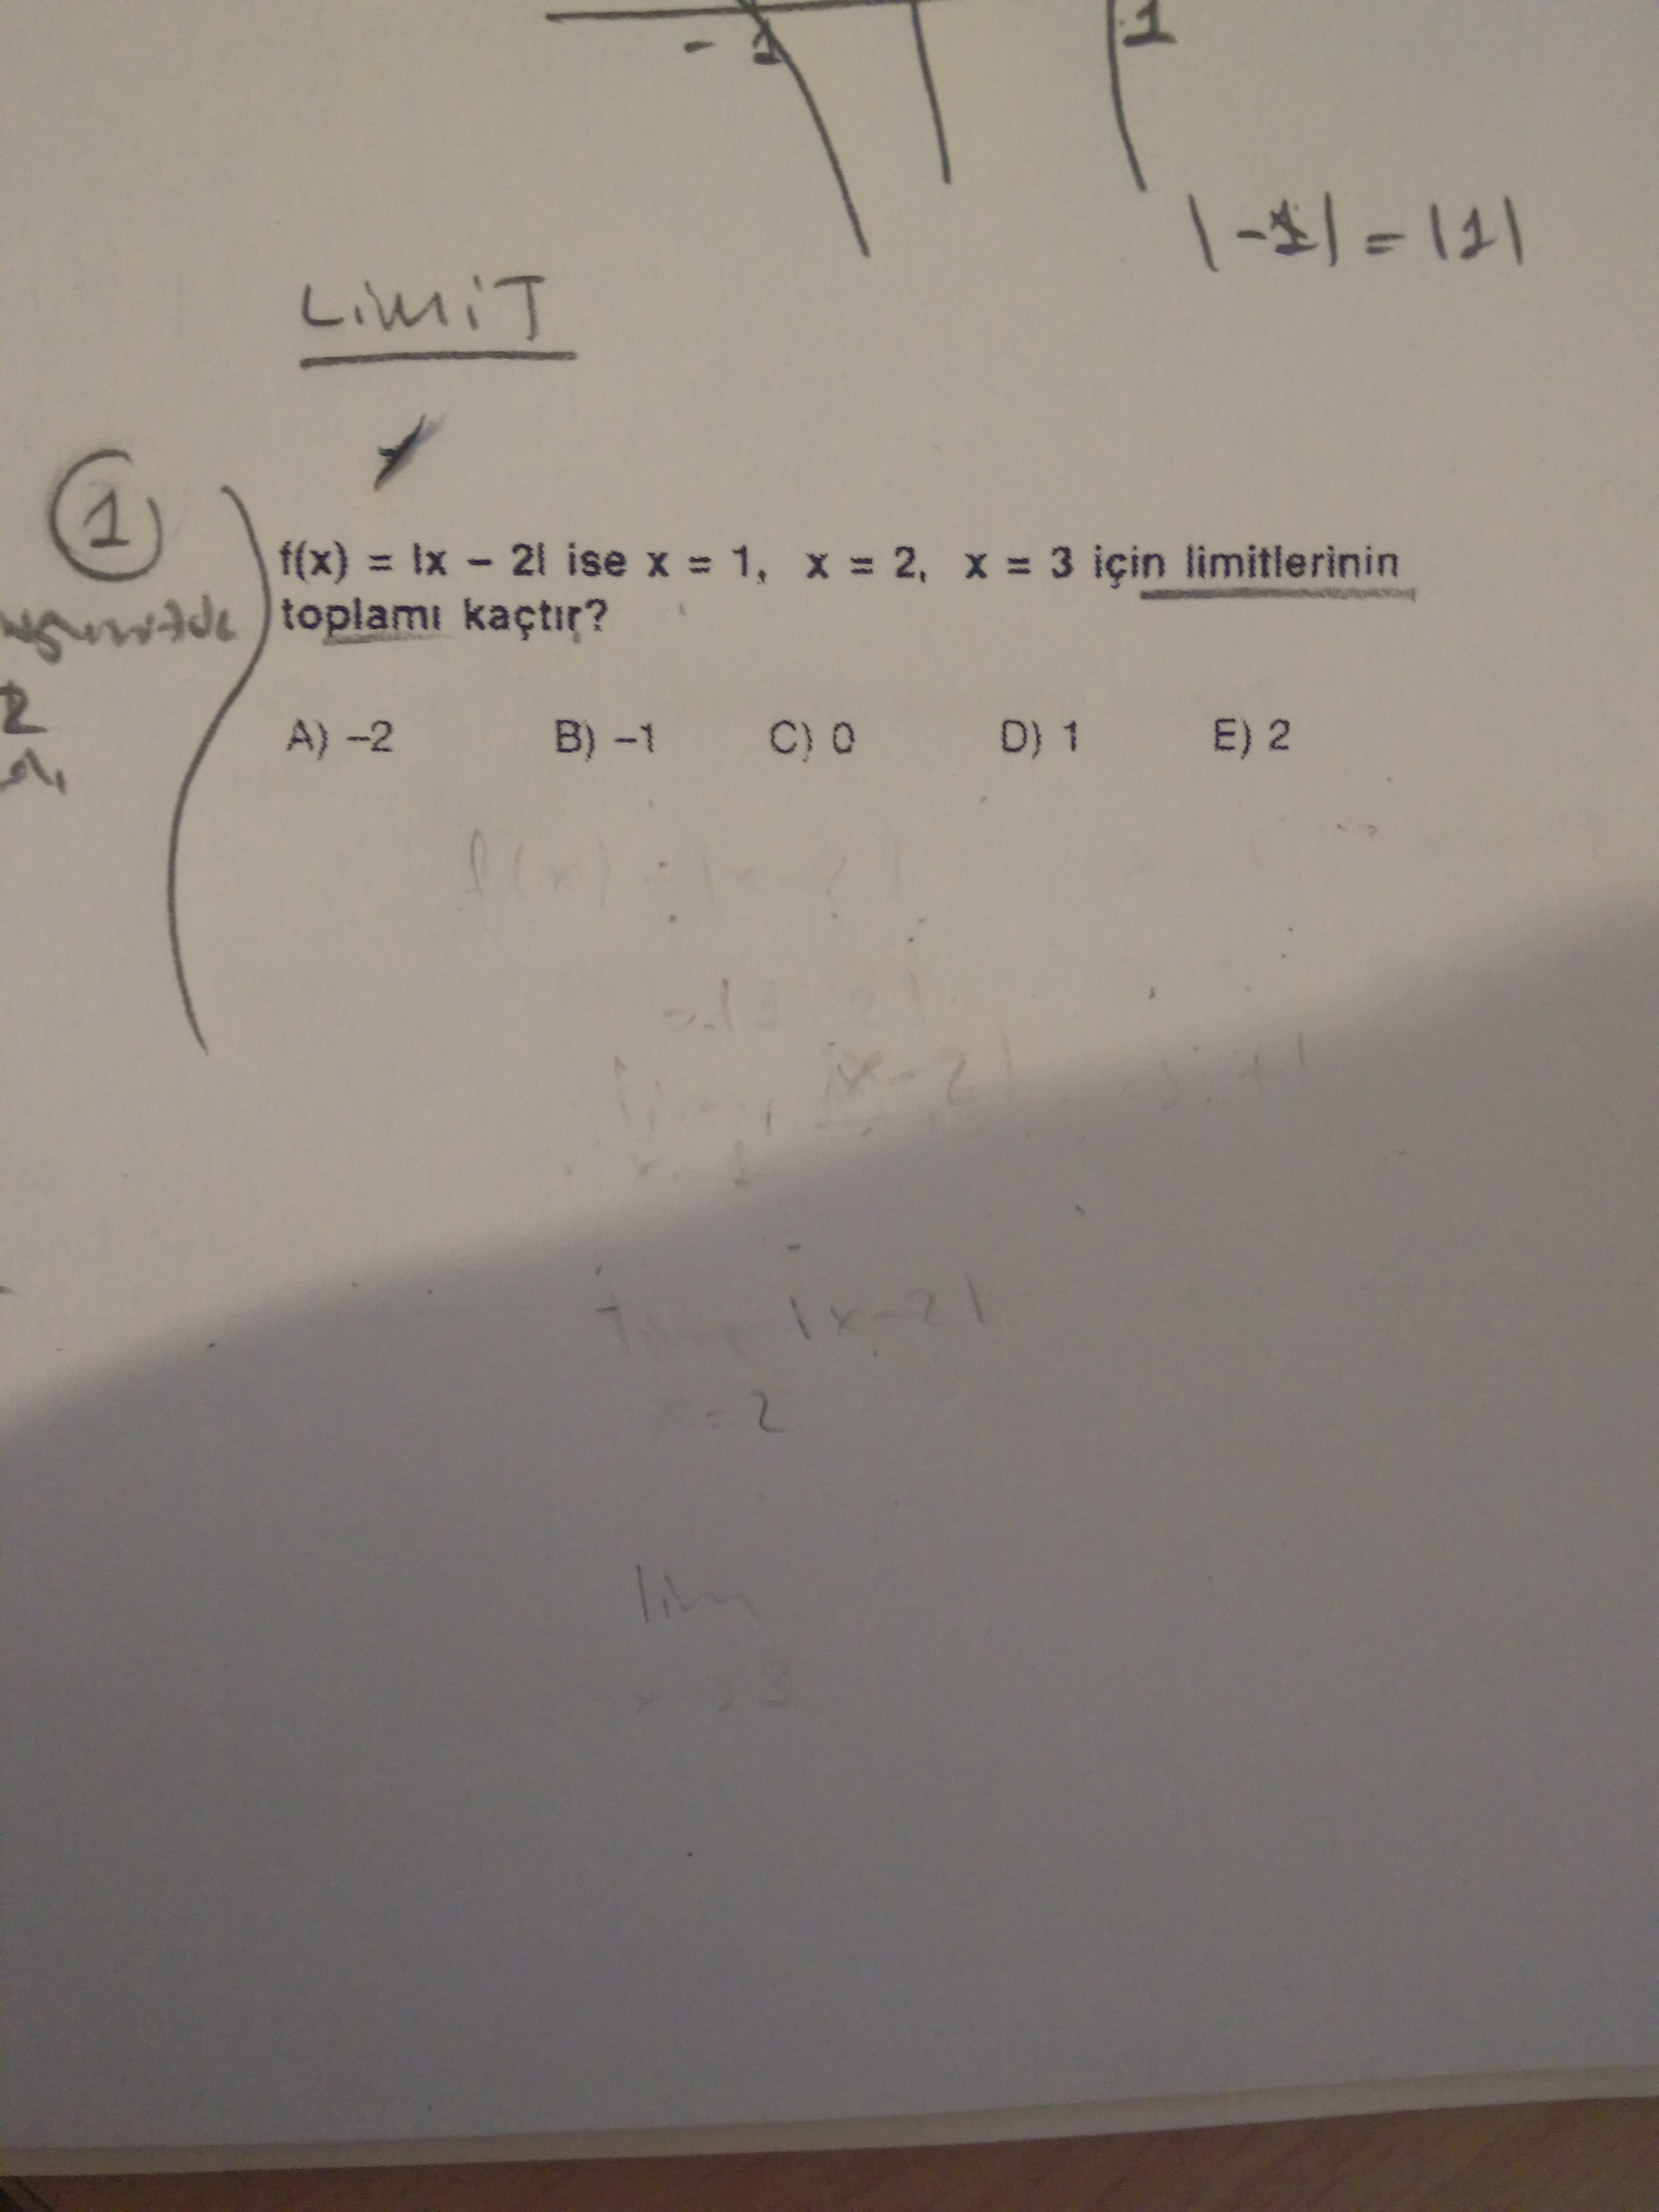 - 1 1
|-1| = |1|
LİMİT
1
f(x) = |x – 2| ise x = 1, x = 2, x = 3 için limitlerinin
toplamı kaçtır?
2
A) –2 B) –1 C) 0 D) 1 E) 2
|x-2|
x=2
lim
x→3